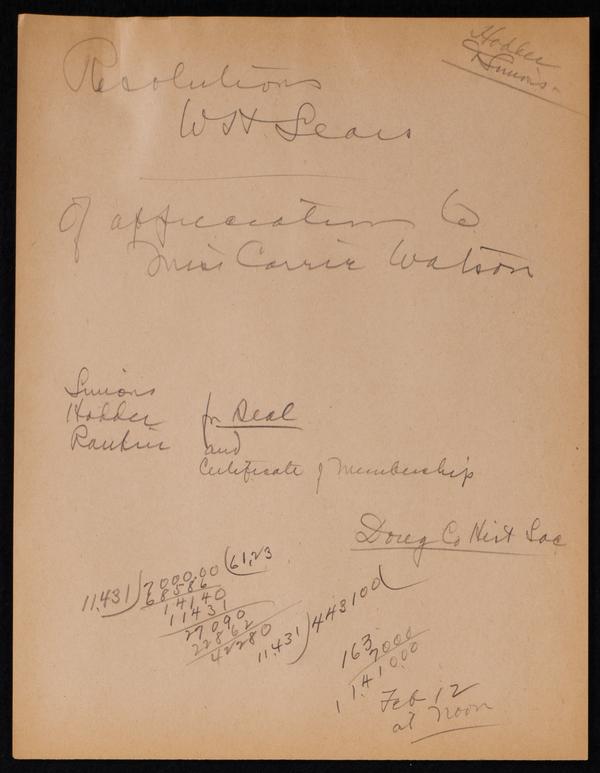 Hodder
Simons
Resolutions
WH Sears
Of appreciation to
Miss Carrie Watson
Simons
Hodder for Seal
Rankin and
Certificate of Membership
Doug Co Hist Soc
11,431)7000.00(61,23
68586
14140
11431
27090
22862
42280
11,431)443100(
163
7000
1,141000
Feb 12
at Noon